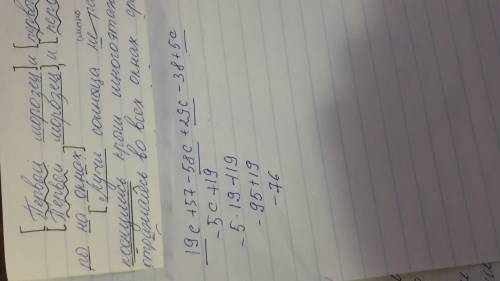 [Первый морозец] и [перво
[Первый морозец], и [перо
ро на окнах]
[Лучи солнца не
коснулись крыш многоэтаж
отражаясь во всех окнах
19c + 57 - 58c + 29c - 38 + 5c
-5c + 19
-5 · 19 + 19
-95 + 19
-76